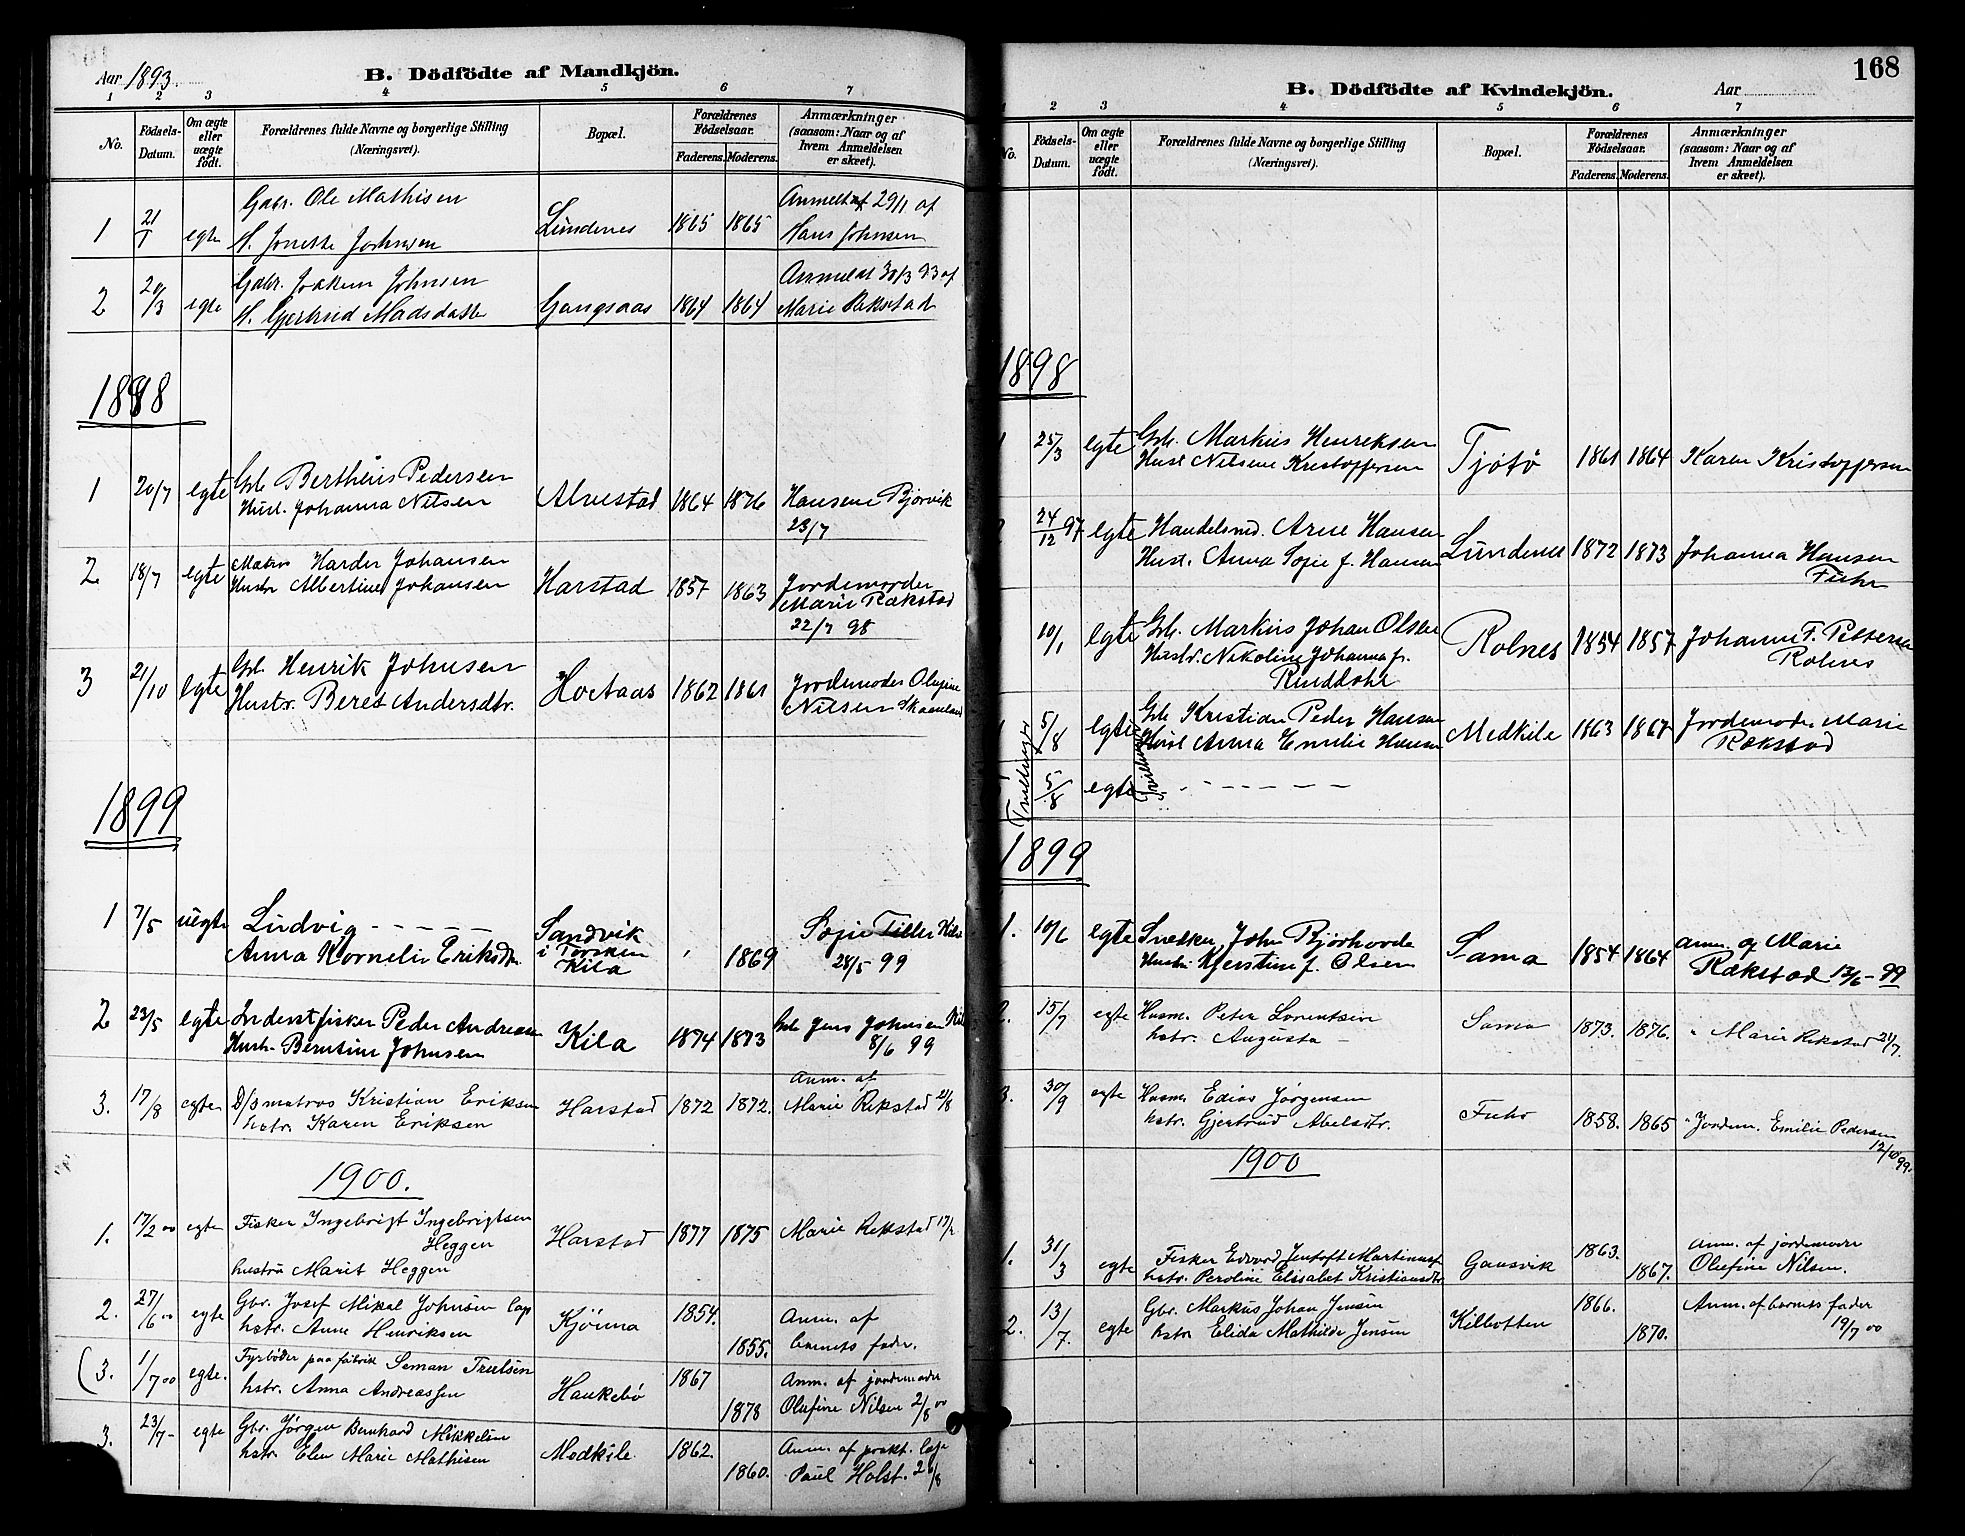 Aar 1893
B. Dödfödte af Mandkjön.
1 2 3 4 5 6 7
No.
Födsels-Datum.
Om ægte eller uægte födt.
Forældrenes fulde Navne og borgerlige Stilling (Næringsvei).
Bopæl.
Forældrenes Födselsaar.
Faderens. Moderens.
Anmærkninger (saasom: Naar og af hvem Anmeldelsen er skeet).
1 21/1 egte Gdbr. Ole Mathisen Lundenes 1865 1865 Anmeldt 29/1 af
H. Jonette Johnsen Hans Johnsen
2 20/3 egte Gdbr. Joakim Johnsen Gangsaas 1864 1864 Anmeldt 30/3 93 af
H. Gjertrud Madsdatter Marie Rekstad
1898
1 20/7 egte Gbr. Bertheus Pedersen Alvestad 1864 1876 Hansene Bjørvik
Hust. Johanna Nilsen 23/7
2 18/7 egte Matros Harder Johansen Harstad 1857 1863 Jordemoder
Hustr Albertine Johansen Marie Rækstad
22/7 98
3 21/10 egte Gbr. Henrik Johnsen 1862 1861 Jordemoder Olufine
Hustr. Beret Andersdtr. Nilsen Skaanland
1899
1 7/5 uegte Ludvig - - - - - Sandvik 1869 Sofie Tiller Kila
Anna Kornelie Eriksdtr. i Torsken 28/5 99
Kila
2 23/5 egte Inderst fisker Peder Andreasen Kila 1874 1873 Gbr Jens Johnsen Kila
Hustr. Berntine Johnsen 8/6 99
3. 17/8 egte D/S matros Kristian Eriksen Harstad 1872 1872. Anm. af
hstr. Karen Eriksen Marie Rekstad 21/8
1900.
1. 17/2 00 egte Fisker Ingebrigt Ingebrigtsen Harstad 1877 1875 Marie Rekstad 17/2
Heggen
hustru Marit Heggen
2. 27/6 00 egte Gbr. Josef Mikal Johnsen Lap Kjønna 1854. 1855. Anm. af
hstr. Anne Henriksen barnets fader.
(3. 1/7 00 egte. Fyrbøder paa fabrik Seman Trulsen Haukebø 1867 1878 Anm. af jordemoder
hstr. Anna Andreassen Olufine Nilsen 2/8 00
3. 23/7 - egte Gbr. Jørgen Bernhard Mikkelsen Medkile 1862. 1860. Anm. af prakt. læge
hstr. Elen Marie Mathisen Paul Holst. 2/8
168
B. Dödfödte af Kvindekjön.
Aar
1 2 3 4 5 6 7
No.
Födsels-Datum.
Om ægte eller uægte födt.
Forældrenes fulde Navne og borgerlige Stilling (Næringsvei).
Bopæl.
Forældrenes Födselsaar.
Faderens. Moderens.
Anmærkninger (saasom: Naar og af hvem Anmeldelsen er skeet).
1898
1 25/3 egte Gbr. Markus Henriksen Tjøtø 1861 1864 Karen Kristoffersen
Hust Nilsine Kristoffersen
24/12 97 egte Handelsmd. Arne Hansen Lundenes 1872 1873 Johanna Hansen
Hust. Anna Sofie f. Hansen Fuhr
10/1 egte Gbr. Markus Johan Olsen Rolnes 1854 1857 Johanne F. Pettersen
Hustr. Nikoline Johanna f. Rolnes
1 5/8 egte Gbr Kristian Peder Hansen Medkile 1863 1867 Jordemoder Marie
Hust Anna Emilie Hansen Rækstad
Tvillinger
Tvillinger
5/8 egte - - - - - - -
1899
1. 10/6 egte Snedker John Bjørhovde Sama 1854 1864 anm. af Marie
Hustr. Kjerstine f. Olsen Rækstad 12/6 - 99
2. 15/7 egte Husm. Peter Lorentsen Sama 1873. 1876. " Marie Rekstad 21/7.
hstr. Augusta -
3. 30/9 egte Husm Edias Jørgensen Fuhr 1858. 1865 " Jordem. Emilie Pedersen
hstr. Gjertrud Abelsdtr. 12/10 99.
1900
1. 31/3 egte Fisker Edvard Jentoft Martinus Gausvik 1863. 1867. Anm. af jordemoder
hstr. Peroline Elisabet Kristiansdtr Olufine Nilsen.
2. 13/7. egte Gbr. Markus Johan Jensen Kilbotten 1866. 1870. Anm. af barnets fader
hstr. Elida Mathilde Jensen 19/7 00